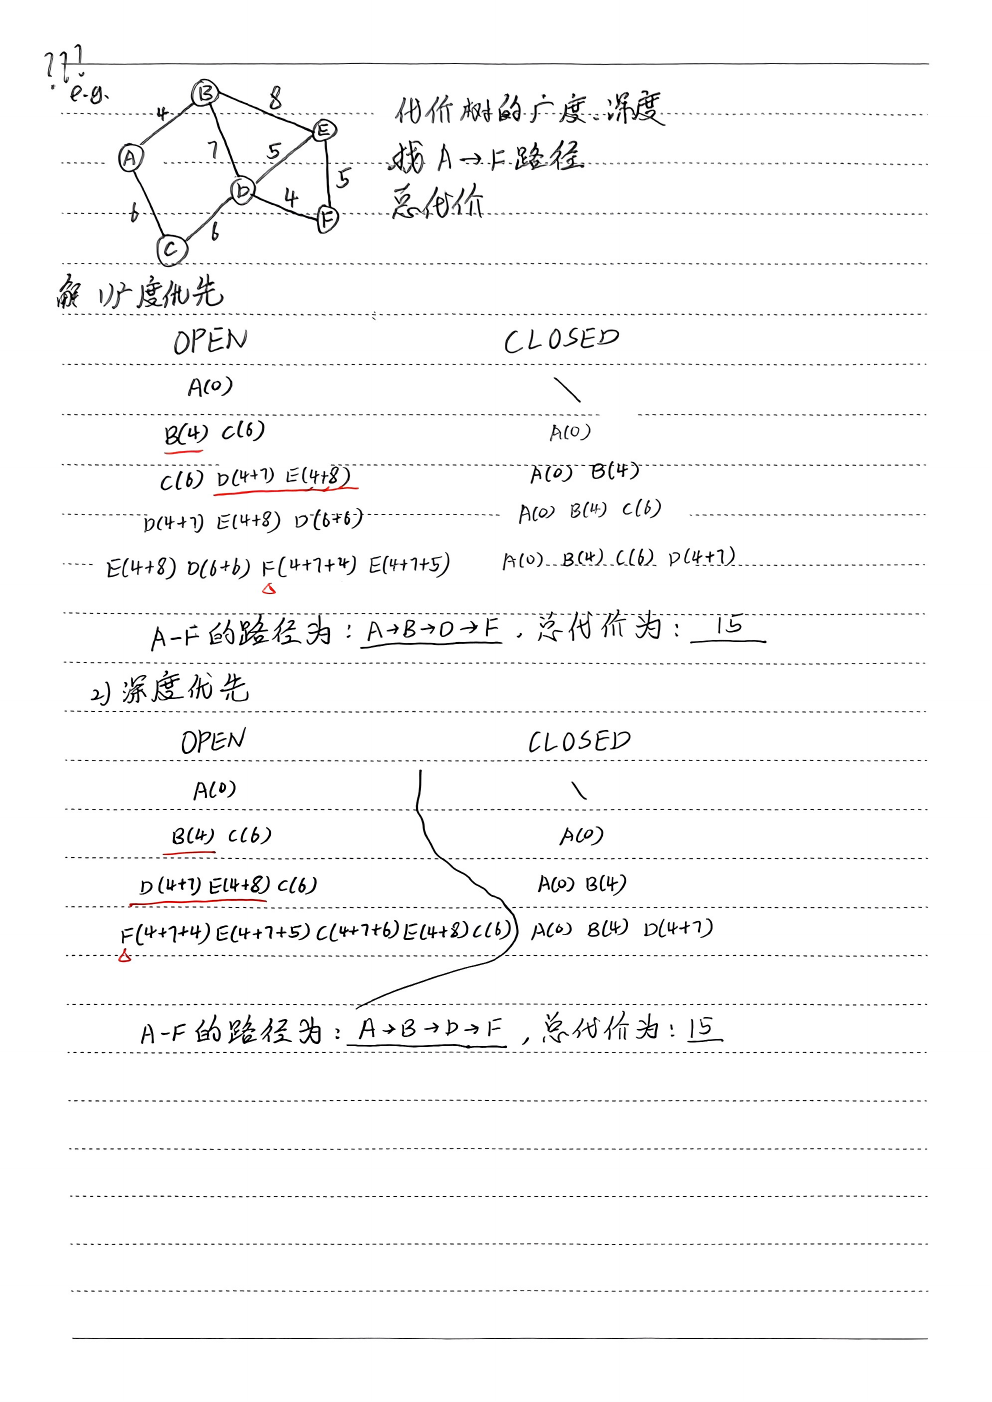 ???
e.g.
代价树的广度、深度
找 A→F 路径
总代价
A B C D E F
4 8 7 5 5 6 6 4
解 1) 广度优先
OPEN CLOSED
A(0) \
B(4) C(6) A(0)
C(6) D(4+7) E(4+8) A(0) B(4)
D(4+7) E(4+8) D(6+6) A(0) B(4) C(6)
E(4+8) D(6+6) F(4+7+4) E(4+7+5) A(0) B(4) C(6) D(4+7)
A-F的路径为: A→B→D→F , 总代价为: 15
2) 深度优先
OPEN CLOSED
A(0) \
B(4) C(6) A(0)
D(4+7) E(4+8) C(6) A(0) B(4)
F(4+7+4) E(4+7+5) C(4+7+6) E(4+8) C(6) A(0) B(4) D(4+7)
A-F的路径为: A→B→D→F , 总代价为: 15